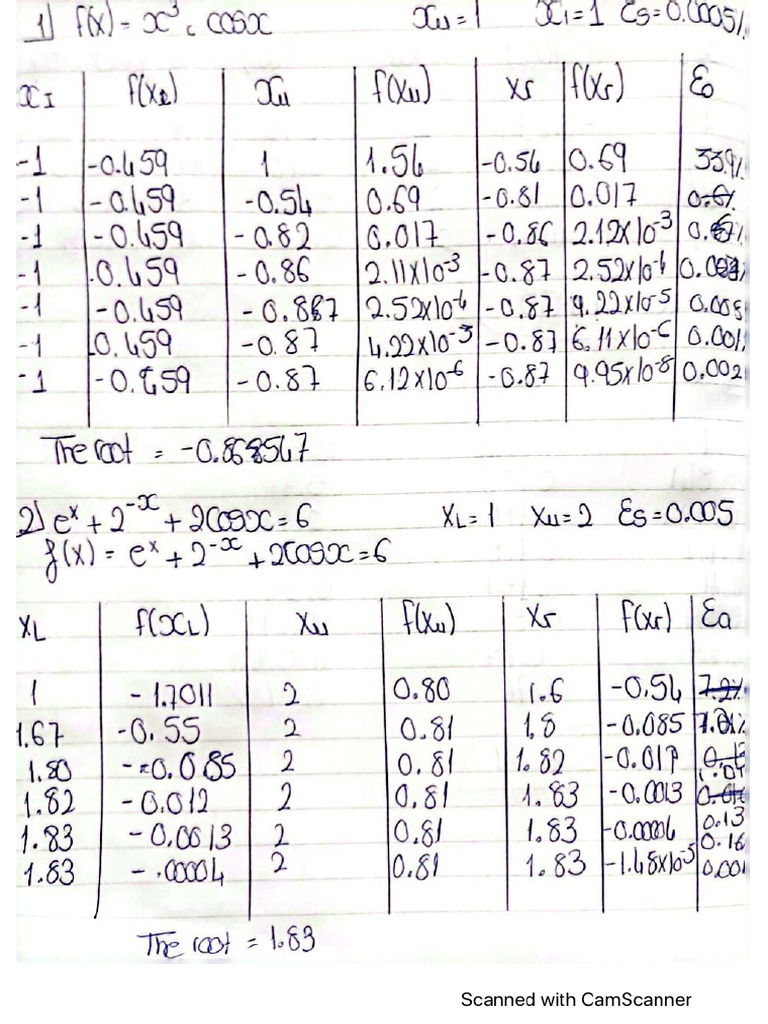 1) f(x) = x³ c cosx xu = 1 xI = 1 Es = 0.0005%
xI f(xL) xu f(xu) xr f(xr)
-1 -0.459 1 1.56 -0.56 0.69 33.9%
-1 -0.459 -0.54 0.69 -0.81 0.017
-1 -0.459 -0.82 0.017 -0.86 2.12x10-3
-1 0.459 -0.86 2.11x10-3 -0.87 2.52x10-6
-1 -0.459 2.52x10-6 -0.87 9.22x10-5 0.005
-1 0.459 -0.87 4.22x10-3 -0.87 6.11x10-6 0.001
-1 -0.87 6.12x10-6 -0.87 9.95x10-8 0.002
The root = -0.868567
2) eˣ + 2⁻ˣ + 2cosx = 6 XL = 1 Xu = 2 Es = 0.005
f(x) = eˣ + 2⁻ˣ + 2cosx = 6
XL f(xL) Xu f(xu) Xr f(xr) Ea
1 -1.7011 2 0.80 1.6 -0.54 7.2%
1.67 -0.55 2 0.81 1,8 -0.085
1.80 -0.085 2 0.81 1.82 -0.017
1.82 -0.012 2 0.81 1.83 -0.0013
1.83 -0.0013 2 0.81 1.83 0.13
0.16
1.83 -.00004 2 0.81 1.83 -1.48x10-5 0.001
The root = 1.83
Scanned with CamScanner